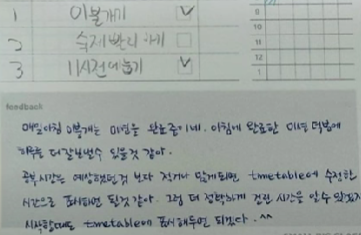 1 이불개기
2 숙제 빨리 하기
3 11시전에 눕기
8
9
10
11
12
1
feedback
매일아침 이불개는 미션을 완료 이네. 아침에 완료한 미션 덕분에
하루를 더 잘보낼수 있을것 같아.
공부시간은 예상했던것 보다 적거나 많게되면 timetable에 수정한
시간으로 표시하면 될것같아. 그럼 더 정확하게 걸린 시간을 알수 있겠지
시작할때도 timetable에 표시해두면 되겠다. ^^